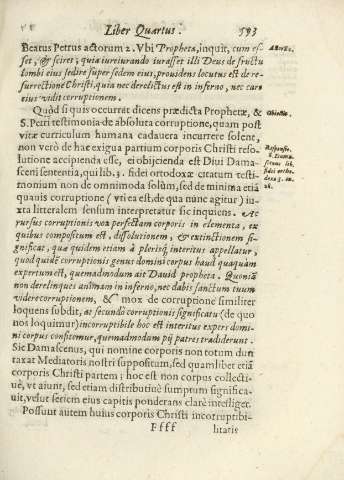 Liber Quartus. 593
Beatus Petrus actorum 2. Vbi Propheta, inquit, cum es-
set, & sciret, quia iureiurando iurasset illi Deus de fructu
lumbi eius sedere super sedem eius, prouidens locutus est de re-
surrectione Christi, quia nec derelictus est in inferno, nec caro
eius vidit corruptionem.
Quòd si quis occurret dicens prædicta Prophetæ, &
Obiectio.
S. Petri testimonia de absoluta corruptione, quam post
vitæ curriculum humana cadauera incurrere solent,
non verò de hac exigua partium corporis Christi reso-
Responsio.
lutione accipienda esse, ei obijcienda est Diui Dama-
S. Dama-
sceni sententia, qui lib. 3. fidei orthodoxæ citatum testi-
scenus lib.
monium non de omnimoda solùm, sed de minima etiā
fidei ortho-
doxæ 3. ca.
quauis corruptione (vti ea est, de qua nunc agitur) iu-
28.
xta litteralem sensum interpretatur sic inquiens. At
rursus corruptionis vox perfectam corporis in elementa, ex
quibus compositum est, dissolutionem, & extinctionem si-
gnificat, quæ quidem etiam à plerisq; interitus appellatur,
quod quidē corruptionis genus domini corpus haud quaquàm
expertum est, quemadmodum ait Dauid propheta. Quoniā
non derelinques animam in inferno, nec dabis sanctum tuum
videre corruptionem, & mox de corruptione similiter
loquens subdit, at secundū corruptionis significatū (de quo
nos loquimur) incorruptibile hoc est interitus expers domi-
ni corpus confitemur, quemadmodum pij patres tradiderunt.
Sic Damascenus, qui nomine corporis non totum dun
taxat Mediatoris nostri suppositum, sed quamlibet etiā
corporis Christi partem; hoc est non corpus collecti-
uè, vt aiunt, sed etiam distributiuè sumptum significa-
uit, velut seriem eius capitis ponderans clarè intelliget.
Possunt autem huius corporis Christi incorruptibi-
Ffff
litatis